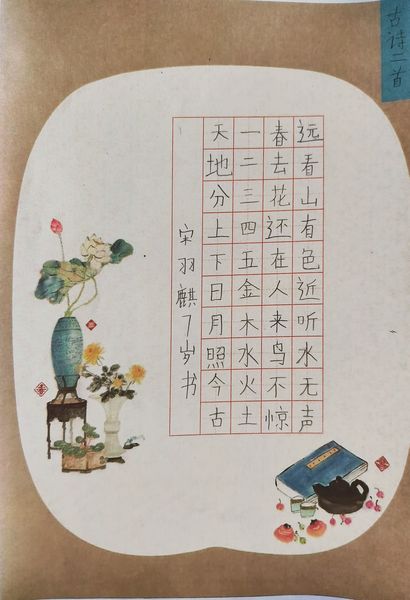 古诗二首
远看山有色近听水无声
春去花还在人来鸟不惊
一二三四五金木水火土
天地分上下日月照今古
宋羽麒7岁书